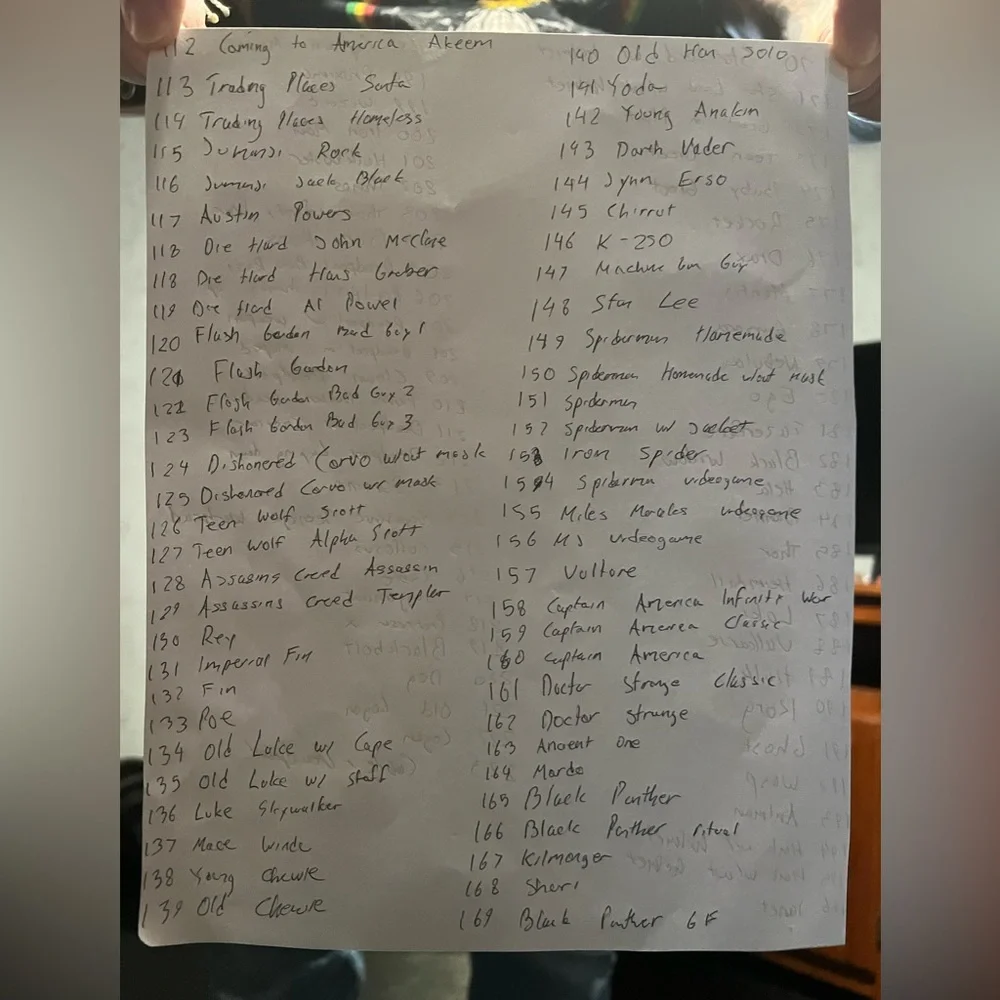 112 Coming to America Akeem
113 Trading Places Santa
114 Trading Places Homeless
115 Jumanji Rock
116 Jumanji Jack Black
117 Austin Powers
118 Die Hard John McClane
118 Die Hard Hans Gruber
119 Die Hard Al Powel
120 Flash Gordon Bad Guy 1
121 Flash Gordon
122 Flash Gordon Bad Guy 2
123 Flash Gordon Bad Guy 3
124 Dishonered Corvo w/out mask
125 Dishonered Corvo w/ mask
126 Teen Wolf Scott
127 Teen Wolf Alpha Scott
128 Assasins Creed Assassin
129 Assassins Creed Templar
130 Rey
131 Imperial Fin
132 Fin
133 Poe
134 Old Luke w/ Cape
135 Old Luke w/ staff
136 Luke Skywalker
137 Mace Windu
138 Young Chewie
139 Old Chewie
140 Old Han Solo
141 Yoda
142 Young Anakin
143 Darth Vader
144 Jynn Erso
145 Chirrut
146 K-250
147 Machine Gun Guy
148 Stan Lee
149 Spiderman Homemade
150 Spiderman Homemade w/out mask
151 Spiderman
152 Spiderman w/ Jacket
153 Iron Spider
154 Spiderman videogame
155 Miles Morales videogame
156 MJ videogame
157 Voltore
158 Captain America Infinity War
159 Captain America Classic
160 Captain America
161 Doctor Strange Classic
162 Doctor Strange
163 Ancient One
164 Mordo
165 Black Panther
166 Black Panther ritual
167 Kilmonger
168 Shuri
169 Black Panther GF